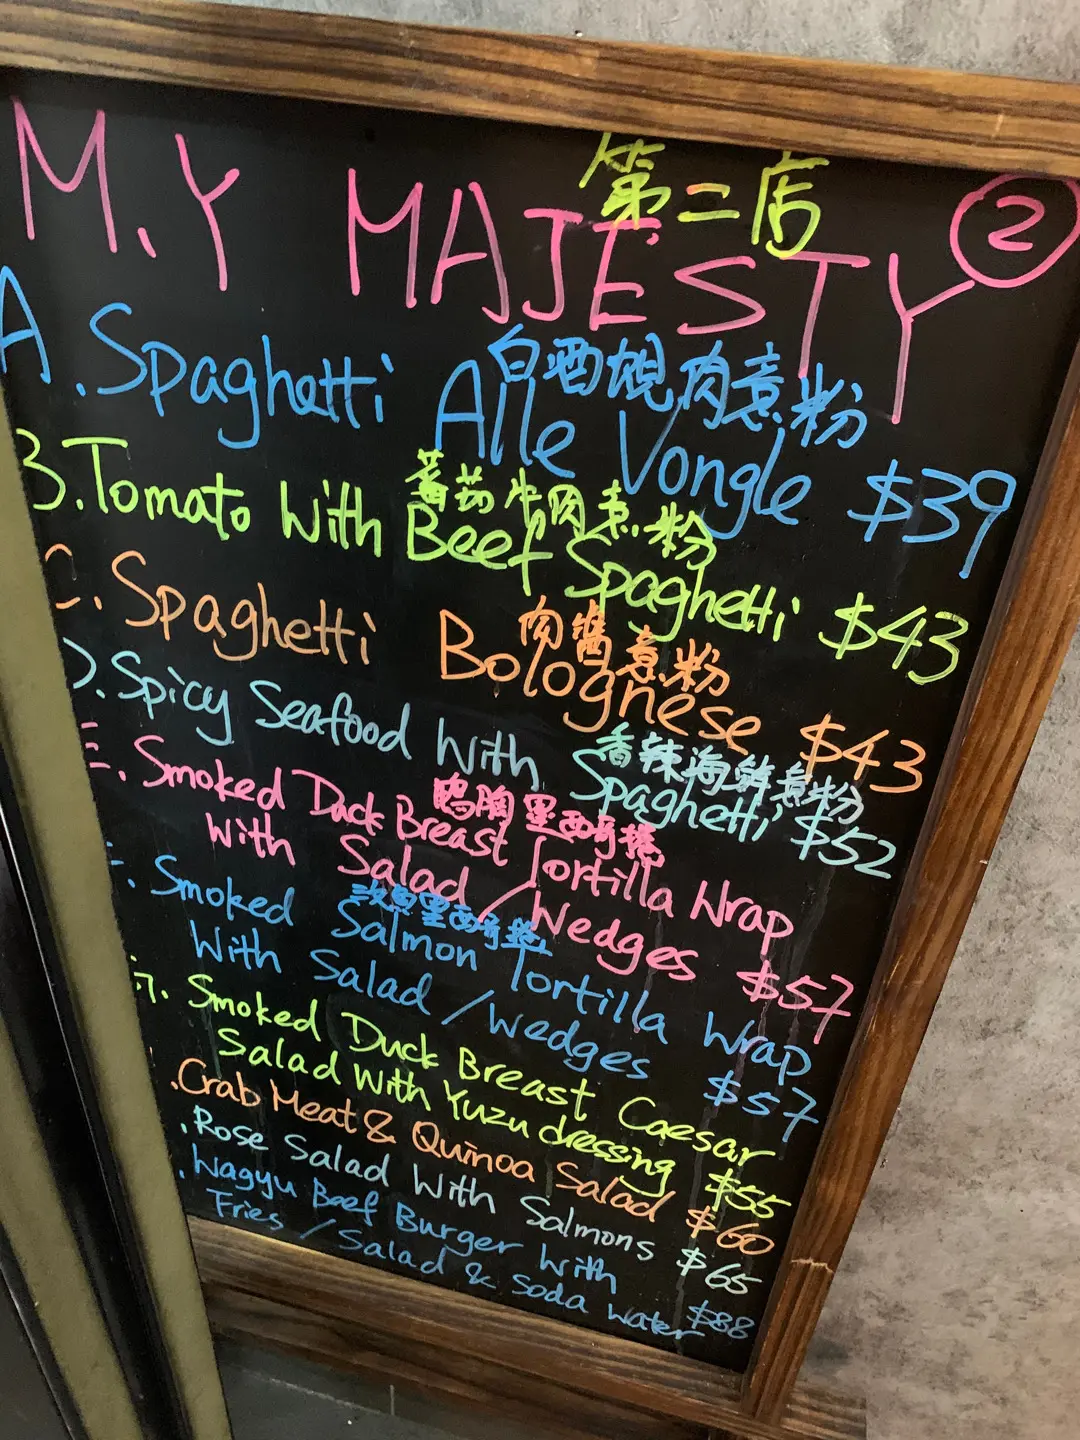 第二店
M.Y MAJESTY ②
白酒蜆肉意粉
A. Spaghetti Alle Vongle $39
蕃茄牛肉意粉
B. Tomato With Beef Spaghetti $43
肉醬意粉
C. Spaghetti Bolognese $43
香辣海鮮意粉
D. Spicy Seafood With Spaghetti $52
鴨胸墨西哥捲
E. Smoked Duck Breast Tortilla Wrap
With Salad / Wedges $57
墨西哥
Smoked Salmon Tortilla Wrap
With Salad / Wedges $57
Smoked Duck Breast Caesar
Salad With Yuzu dressing $55
Crab Meat & Quinoa Salad $60
Rose Salad With Salmons $65
Wagyu Beef Burger With
Fries / Salad & Soda Water $88